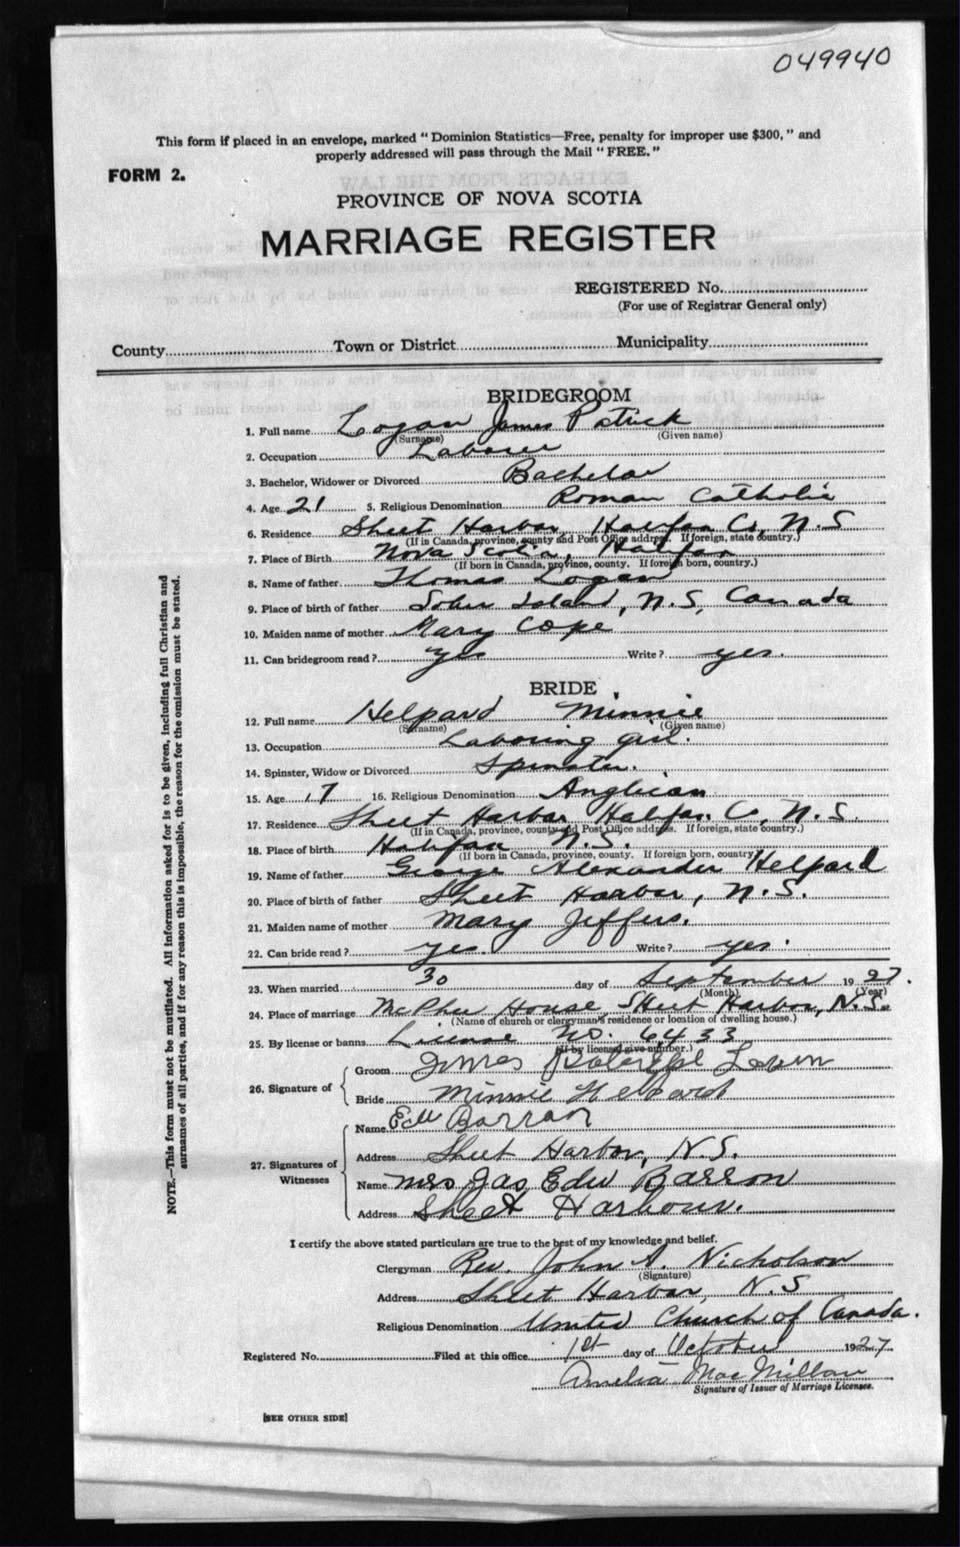 049940
This form if placed in an envelope, marked "Dominion Statistics—Free, penalty for improper use $300," and
properly addressed will pass through the Mail "FREE."
FORM 2.
PROVINCE OF NOVA SCOTIA
MARRIAGE REGISTER
REGISTERED No.
(For use of Registrar General only)
County Town or District Municipality
BRIDEGROOM
1. Full name Logan James Patrick
(Surname) (Given name)
2. Occupation Laborer
3. Bachelor, Widower or Divorced Bachelor
4. Age 21 5. Religious Denomination Roman Catholic
6. Residence Sheet Harbor, Halifax Co, N.S
(If in Canada, province, county and Post Office address. If foreign, state country.)
7. Place of Birth Nova Scotia, Halifax
(If born in Canada, province, county. If foreign born, country.)
8. Name of father Thomas Logan
9. Place of birth of father Sober Island, N.S, Canada
10. Maiden name of mother Mary Cope
11. Can bridegroom read? yes Write? yes.
BRIDE
12. Full name Helpard Minnie
(Surname) (Given name)
13. Occupation Laboring girl.
14. Spinster, Widow or Divorced Spinster.
15. Age 17 16. Religious Denomination Anglican
17. Residence Sheet Harbor Halifax Co, N.S.
(If in Canada, province, county and Post Office address. If foreign, state country.)
18. Place of birth Halifax N.S.
(If born in Canada, province, county. If foreign born, country)
19. Name of father George Alexander Helpard
20. Place of birth of father Sheet Harbor, N.S.
21. Maiden name of mother Mary Jeffers.
22. Can bride read? yes. Write? yes.
23. When married 30 day of September 1927.
(Month) (Year)
24. Place of marriage McPhee House, Sheet Harbor, N.S.
(Name of church or clergyman's residence or location of dwelling house.)
25. By license or banns License No. 6433
(If by license give number.)
26. Signature of
Groom James
Bride Minnie Helpard
27. Signatures of Witnesses
Name Edw Barron
Address Sheet Harbor, N.S.
Name Mrs Jas Edw Barron
Address Sheet Harbour.
I certify the above stated particulars are true to the best of my knowledge and belief.
Clergyman Rev. John A. Nicholson
(Signature)
Address Sheet Harbor, N.S
Religious Denomination United Church of Canada.
Registered No. Filed at this office 1st day of October 1927
Amelia MacMillan
Signature of Issuer of Marriage Licenses.
[SEE OTHER SIDE]
NOTE.—This form must not be mutilated. All information asked for is to be given, including full Christian and
surnames of all parties, and if for any reason this is impossible, the reason for the omission must be stated.